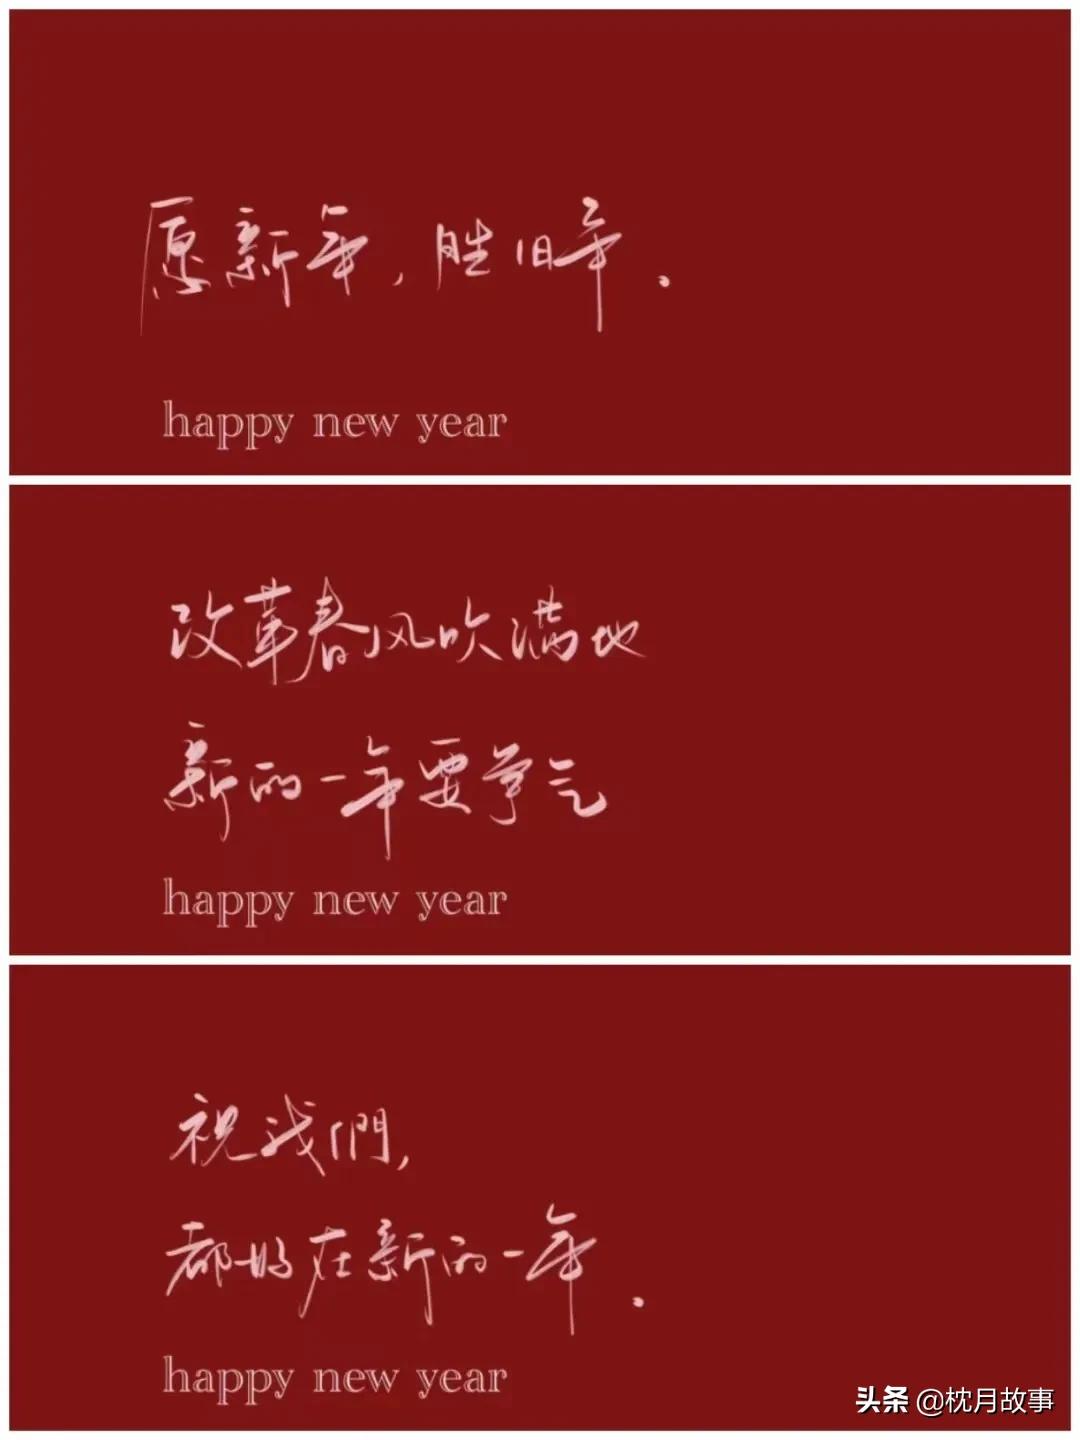 愿新年，胜旧年.
happy new year
改革春风吹满地
新的一年要争气
happy new year
祝我們，
都好在新的一年.
happy new year
头条 @枕月故事